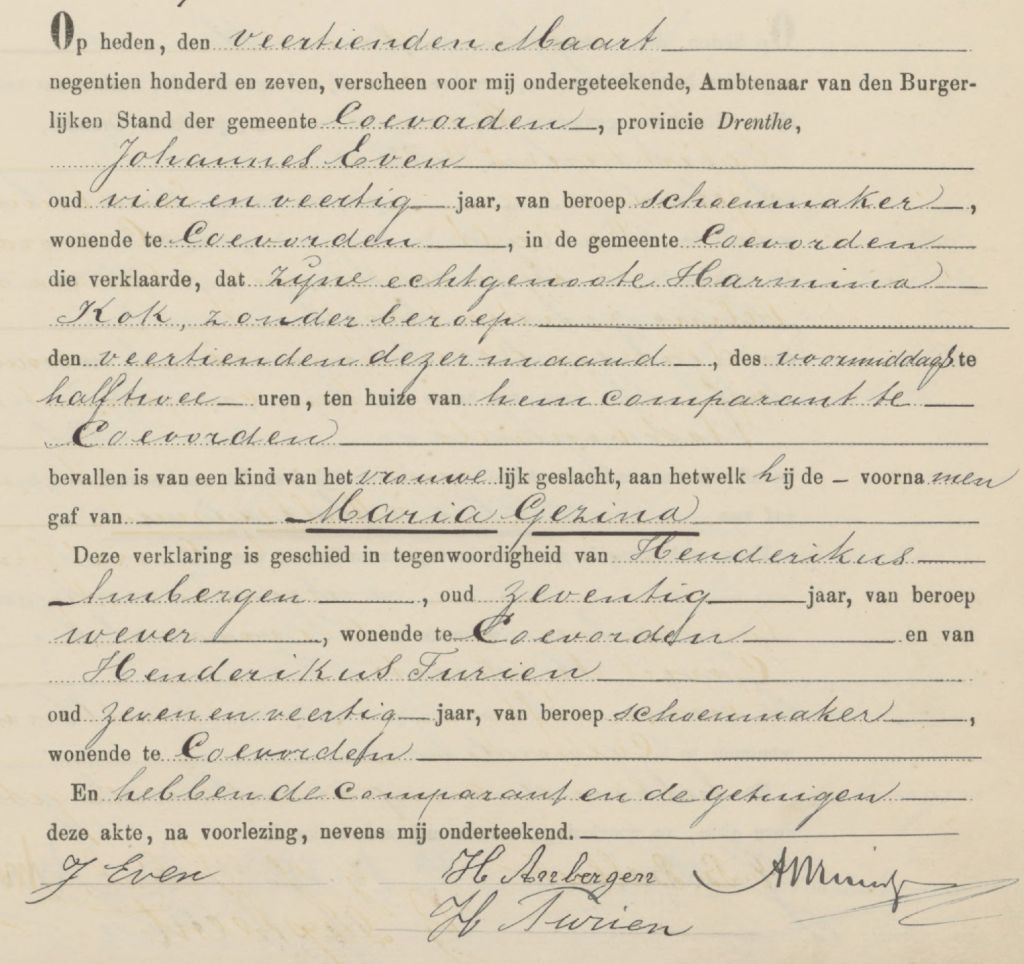 Op heden, den veertienden Maart
negentien honderd en zeven, verscheen voor mij ondergeteekende, Ambtenaar van den Burger-
lijken Stand der gemeente Coevorden, provincie Drenthe,
Johannes Even
oud vier en veertig jaar, van beroep schoenmaker,
wonende te Coevorden, in de gemeente Coevorden
die verklaarde, dat zijne echtgenoote Harmina
Kok, zonder beroep
den veertienden dezer maand, des voormiddags te
half twee uren, ten huize van hem comparant te
Coevorden
bevallen is van een kind van het vrouwelijk geslacht, aan hetwelk hij de – voornamen
gaf van Maria Gezina
Deze verklaring is geschied in tegenwoordigheid van Henderikus
Ambergen, oud zeventig jaar, van beroep
wever, wonende te Coevorden en van
Henderikus Turien
oud zeven en veertig jaar, van beroep schoenmaker,
wonende te Coevorden
En hebben de comparant en de getuigen
deze akte, na voorlezing, nevens mij onderteekend.
J Even H Ambergen
H Turien